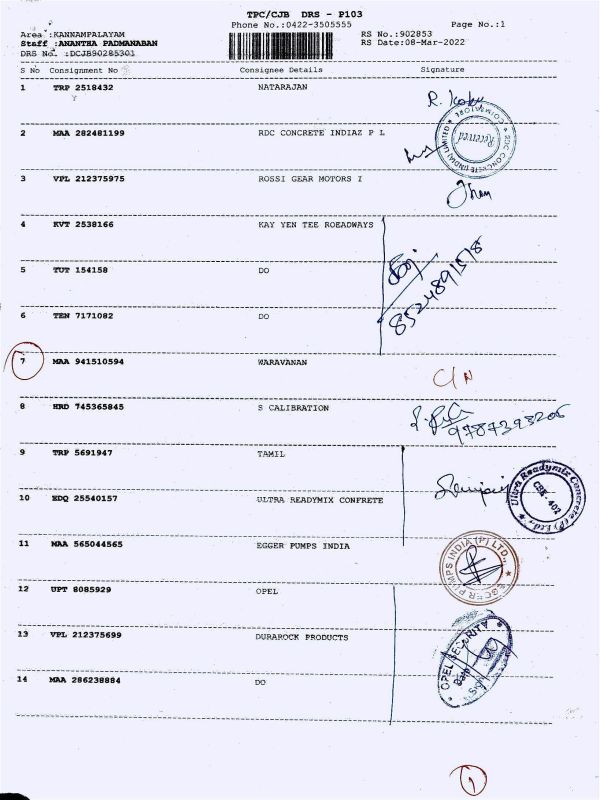 TPC/CJB DRS - P103
Phone No.:0422-3505555
Page No.:1
Area :KANNAMPALAYAM
RS No.:902853
Staff :ANANTHA PADMANABAN
RS Date:08-Mar-2022
DRS No. :DCJB90285301
S No Consignment No Consignee Details Signature
1 TRP 2518432 NATARAJAN
2 MAA 282481199 RDC CONCRETE INDIAZ P L
RDC CONCRETE (INDIA) LIMITED
COIMBATORE
Received
3 VPL 212375975 ROSSI GEAR MOTORS I
4 KVT 2538166 KAY YEN TEE ROEADWAYS
5 TUT 154158 DO
8524891518
6 TEN 7171082 DO
7 MAA 941510594 WARAVANAN
C/N
8 HRD 745365845 S CALIBRATION
9787393206
9 TRP 5691947 TAMIL
10 HDQ 25540157 ULTRA READYMIX CONFRETE
Ultra Readymix Concrete (P) Ltd.,
CBE - 402
11 MAA 565044565 EGGER PUMPS INDIA
EGGER PUMPS INDIA (P) LTD.,
12 UPT 8085929 OPEL
13 VPL 212375699 DURAROCK PRODUCTS
OPEL SECURITY
14 MAA 286238884 DO
1